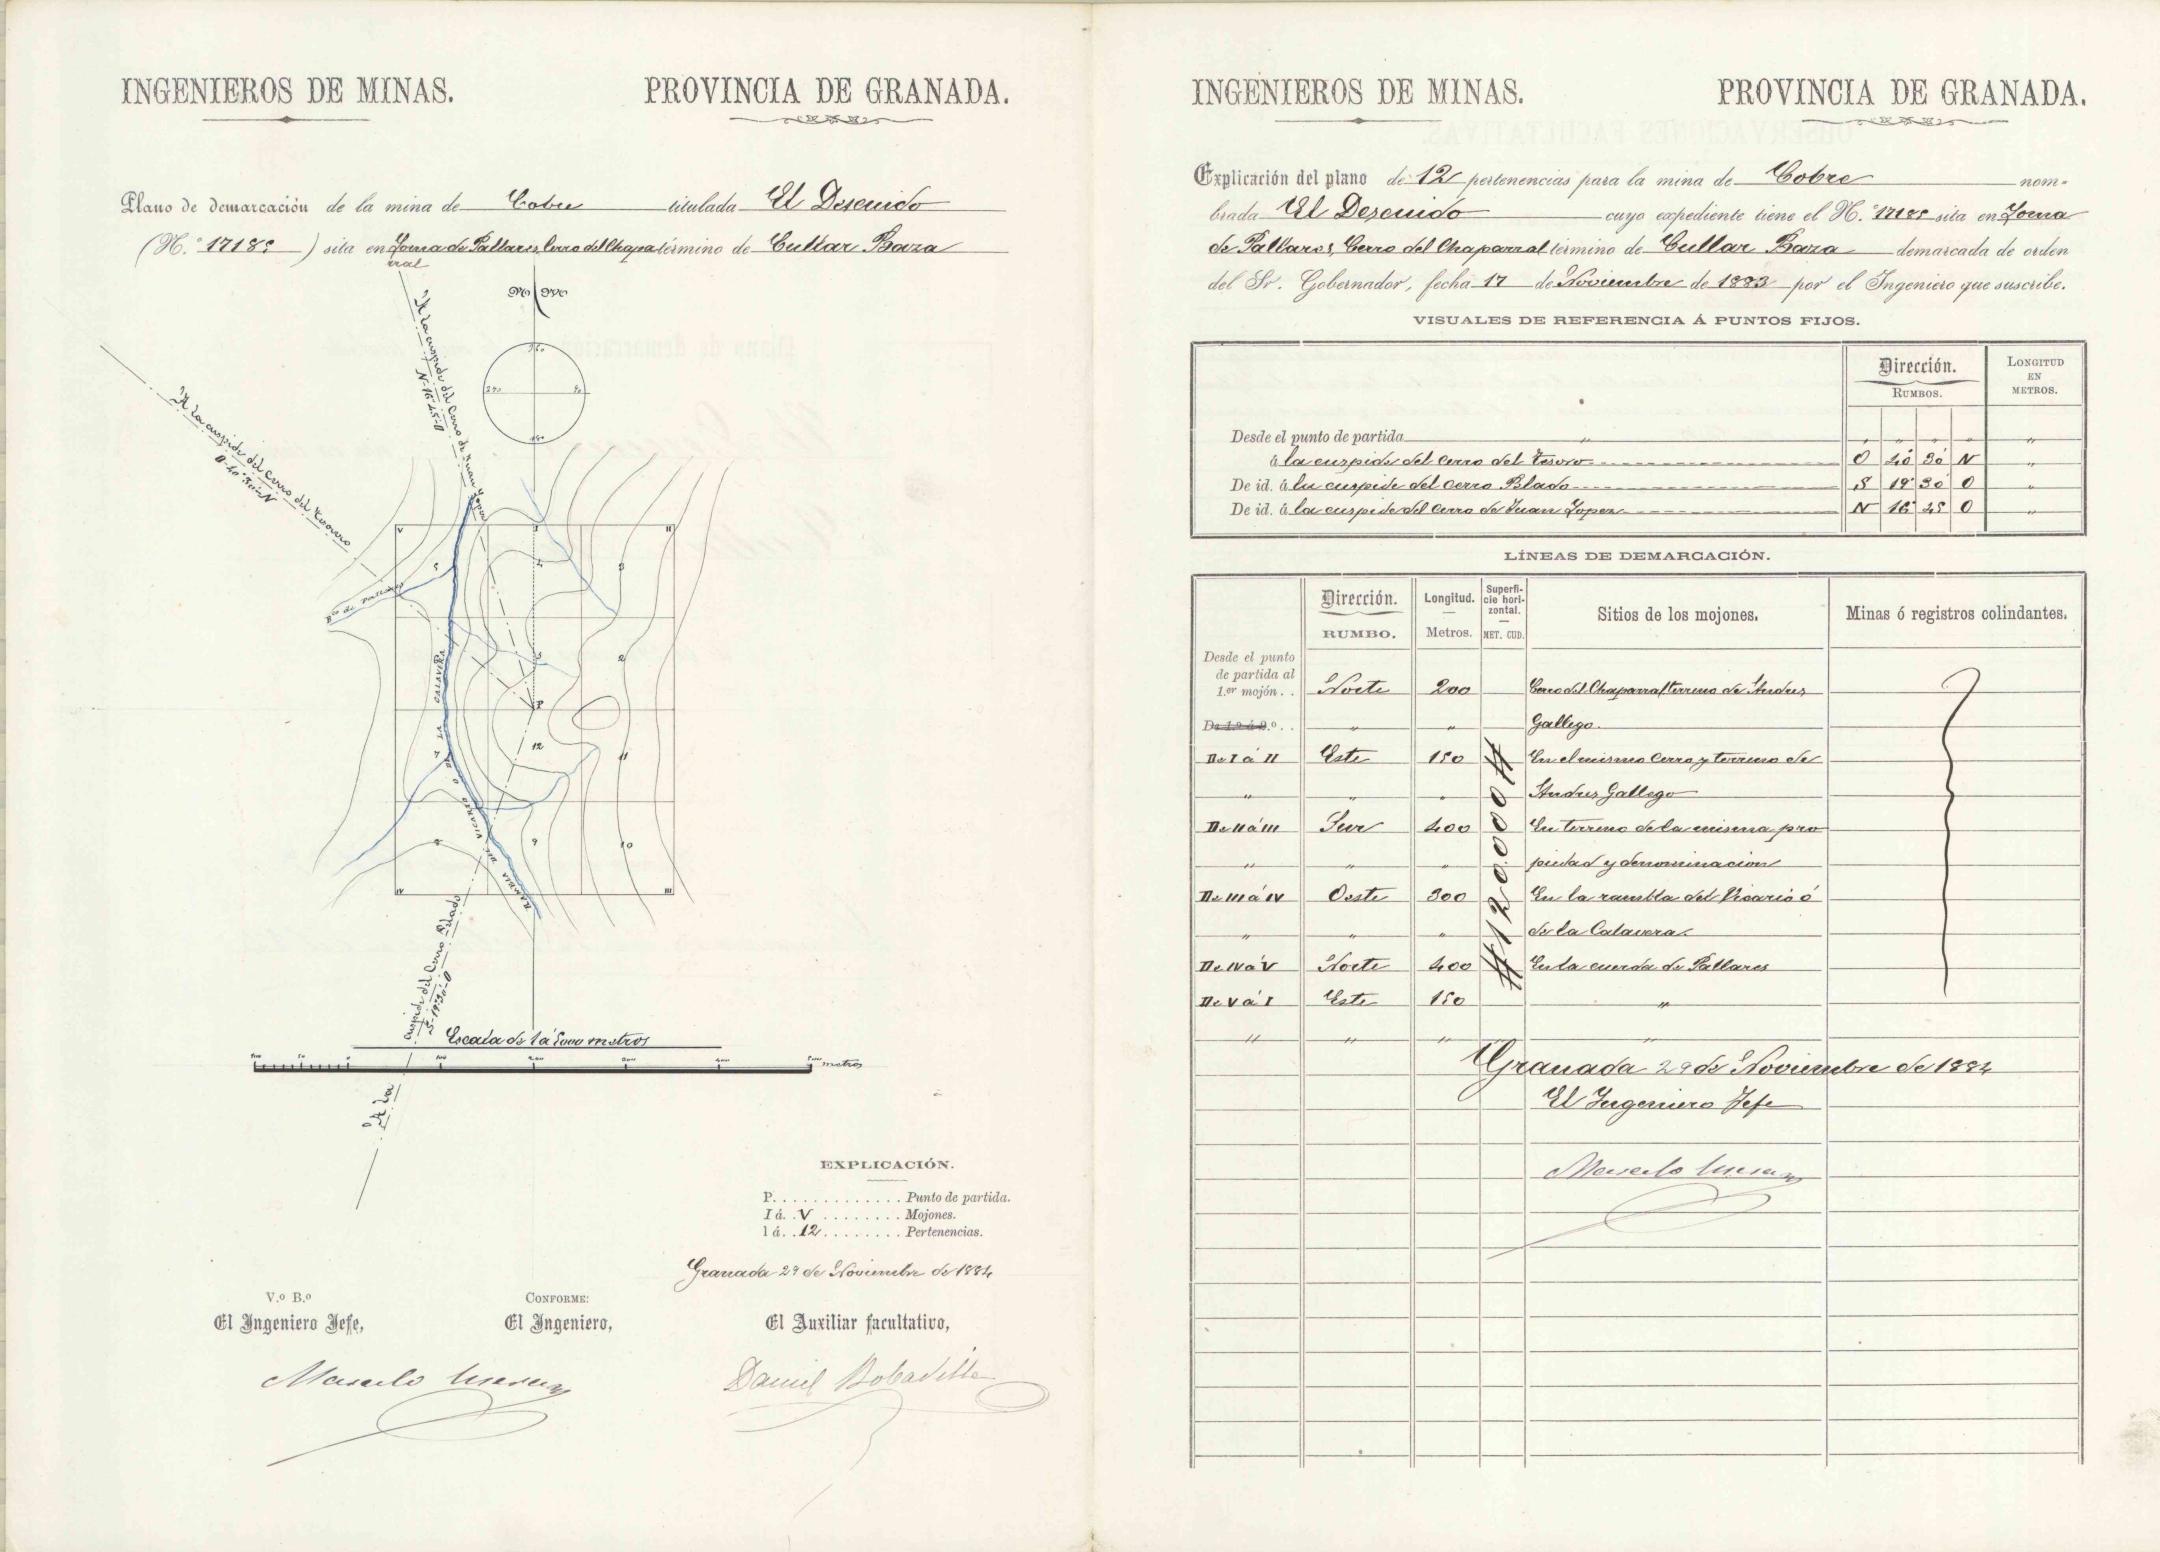 INGENIEROS DE MINAS. PROVINCIA DE GRANADA.
Plano de demarcación de la mina de Cobre titulada El Descuido
(N.º 1718) sita en Loma de Pallares, Cerro del Chapa término de Cullar Baza
rral
Á la cuspide del Cerro de Juan Lopez
N-16-45-O
Á la cuspide del Cerro del Tesoro
O-40°30'-N
360
270 90
180
V I II
5 4 3
Rco de Pallares
DE LA CALAVERA
3 2
P
12 11
RAMBLA DEL VICARIO O
8 9 10
IV III
Á la cuspide del Cerro Pelado
S-19°30'-O
Escala de 1 á 5000 metros
100 50 0 100 200 300 400 500 metros
EXPLICACIÓN.
P. . . . . . . . . . . . . Punto de partida.
I á. . V . . . . . . . . Mojones.
1 á. . 12 . . . . . . . . Pertenencias.
Granada 29 de Noviembre de 1884
V.º B.º CONFORME:
El Ingeniero Jefe, El Ingeniero, El Auxiliar facultativo,
Marcelo
Daniel Bobadilla
INGENIEROS DE MINAS. PROVINCIA DE GRANADA.
Explicación del plano de 12 pertenencias para la mina de Cobre nom-
brada El Descuido cuyo expediente tiene el N.º 1718 sita en Loma
de Pallares, Cerro del Chaparral término de Cullar Baza demarcada de orden
del Sr. Gobernador, fecha 17 de Noviembre de 1883 por el Ingeniero que suscribe.
VISUALES DE REFERENCIA Á PUNTOS FIJOS.
Dirección. RUMBOS. LONGITUD EN METROS.
Desde el punto de partida " " " " " "
á la cuspide del cerro del Tesoro O 40° 30' N "
De id. á la cuspide del cerro Pelado S 19° 30' O "
De id. á la cuspide del Cerro de Juan Lopez N 16° 45 O "
LÍNEAS DE DEMARCACIÓN.
Dirección. RUMBO. Longitud. Metros. Superficie horizontal. MET. CUD. Sitios de los mojones. Minas ó registros colindantes.
Desde el punto
de partida al
1.er mojón. . Norte 200 Cerro del Chaparral terreno de Andres
De 1.º á 2.º . . " " Gallego.
De I á II Este 150 En el mismo Cerro y terreno de
" " " Andres Gallego
De II á III Sur 400 En terreno de la misma pro
" " " piedad y denominacion
De III á IV Oeste 300 En la rambla del Vicario ó
" " " de la Calavera.
De IV á V Norte 400 En la cuerda de Pallares
De V á I Este 150 "
" " " "
#120.000#
Granada 29 de Noviembre de 1884
El Ingeniero Jefe
Marcelo